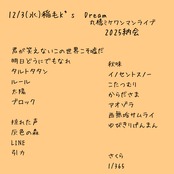 12/3(水)稲毛K's Dream
大橋ミケワンマンライブ
2025納会
君が笑えないこの世界こそ嘘だ
明日どうにでもなれ
タルトタタン
ルール
大橋
ブロック
掠れた声
灰色の森
LINE
引力
秋味
イノセントスノー
こたつむり
からださま
アオゾラ
西無哈サムライ
ゆびきりげんまん
さくら
1/365